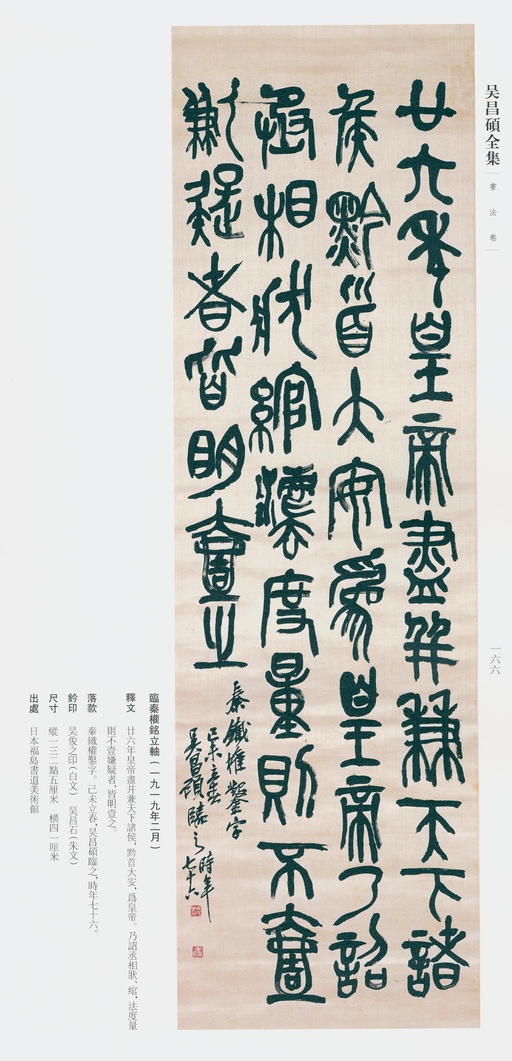 吴昌碩全集
書法卷
一六六
廿六年皇帝盡并兼天下諸
矦黔首大安爲皇帝乃詔
丞相狀綰灋度量則不壹
歉疑者皆明壹之
秦鐵權鑿字
己未立春
吴昌碩臨之時年
七十六
臨秦權銘立軸（一九一九年二月）
釋文　廿六年皇帝盡并兼天下諸侯，黔首大安，爲皇帝。乃詔丞相狀、綰，法度量
則不壹嫌疑者，皆明壹之。
落款　秦鐵權鑿字。己未立春，吴昌碩臨之，時年七十六。
鈐印　吴俊之印（白文）　吴昌石（朱文）
尺寸　縱一三二點五厘米　橫四一厘米
出處　日本福島書道美術館